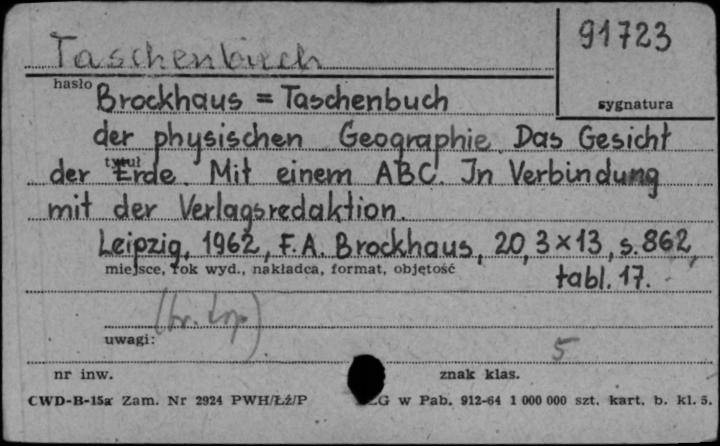 Taschenbuch
91723
hasło
sygnatura
Brockhaus = Taschenbuch
der physischen Geographie. Das Gesicht
tytuł
der Erde. Mit einem ABC. In Verbindung
mit der Verlagsredaktion.
Leipzig, 1962, F. A. Brockhaus, 20,3×13, s. 862,
miejsce, rok wyd., nakładca, format, objętość
tabl. 17.
uwagi:
5
nr inw.
znak klas.
CWD-B-15a Zam. Nr 2924 PWH/Łź/P
w Pab. 912-64 1 000 000 szt. kart. b. kl. 5.